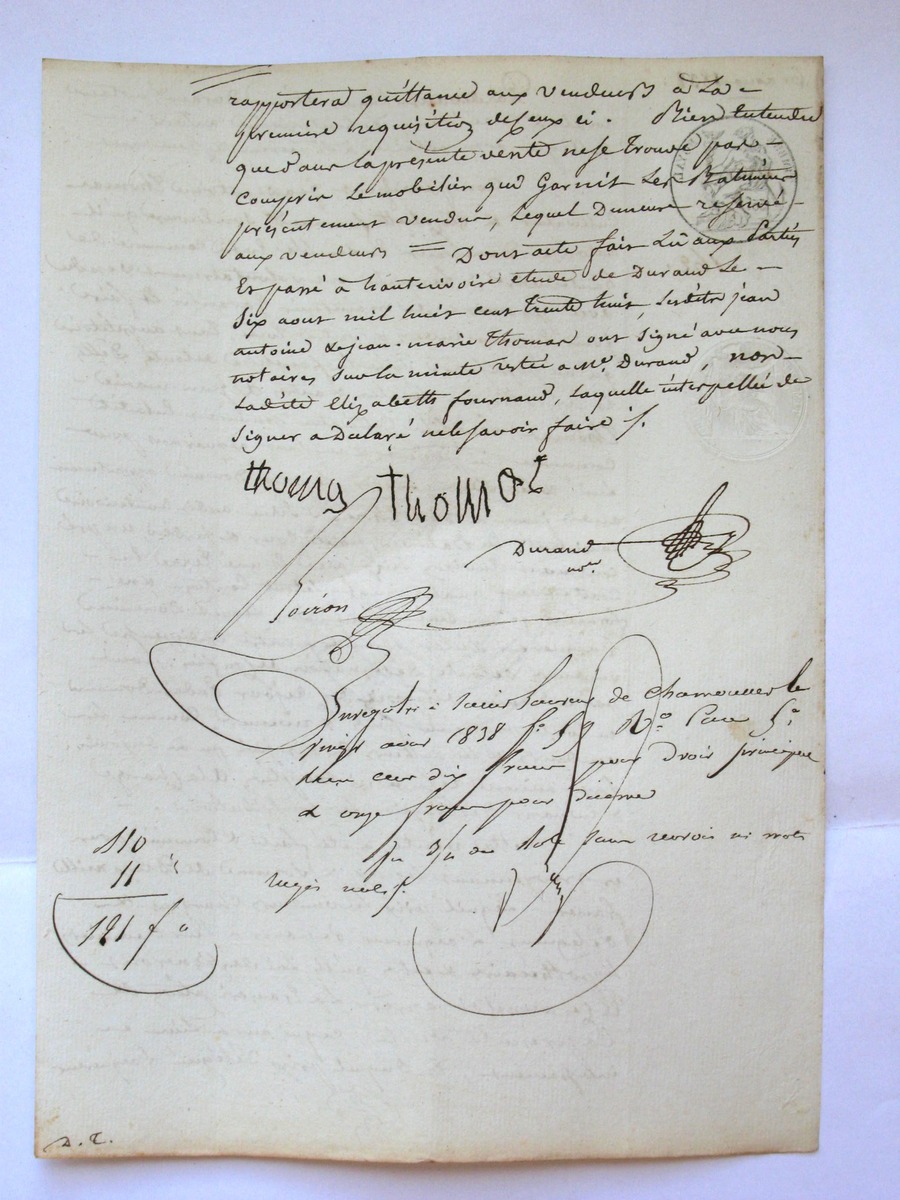 rapportera quittance aux vendeurs à La
première requisition de ceux ci. Bien Entendu
que dans la présente vente ne se Trouve pas
Compris Le mobilier qui Garnit Les Batiments
présentement vendus, Lequel Demeure reservé
aux vendeurs = Dont acte fait Lû aux Parties
Et passé à hauterivoire étude de Durand Le
Six aout mil huit cent trente huit, Lesdits jean
antoine & jean-marie thomas ont signé avec nous
notaires sur La minute restée a Me. Durand, non
Ladite Elizabeth fournand, Laquelle interpellée de
signer a Déclaré ne le savoir faire ./.
thomas thomas
Durand
nore
Poiron
Enregistré à Saint Laurent de Chamousset le
vingt aout 1838 fo 59 Vo Case 5e
Reçu cent dix francs pour droit principal
& onze francs pour dixième
renvoi ni mots
rayés nuls
110
11
121 f
D. T.